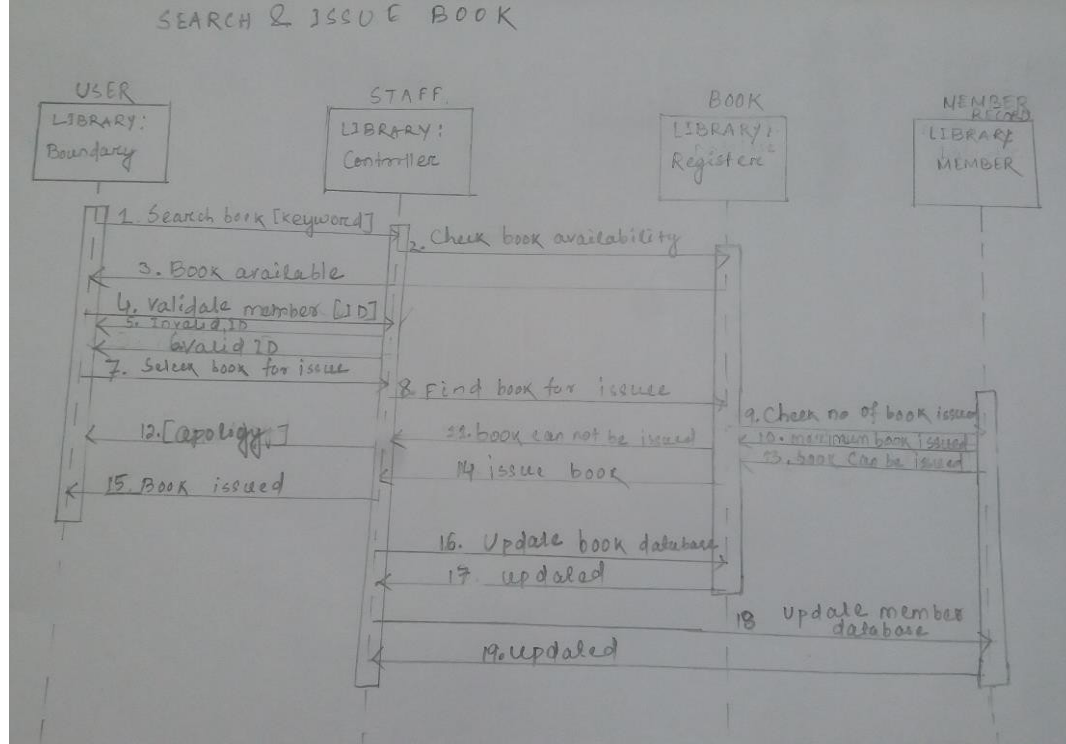 SEARCH & ISSUE BOOK
USER
LIBRARY:
Boundary
STAFF
LIBRARY:
Controller
BOOK
LIBRARY:
Register
MEMBER
RECORD
LIBRARY
MEMBER
1. Search book [keyword]
2. Check book availability
3. Book available
4. Validate member [ID]
5. Invalid ID
6. valid ID
7. Select book for issue
8. Find book for issue
9. Check no of book issued
10. maximum book issued
11. book can not be issued
12. [apoligy]
13. book can be issued
14 issue book
15. Book issued
16. Update book database
17. updated
18 update member
database
19. updated